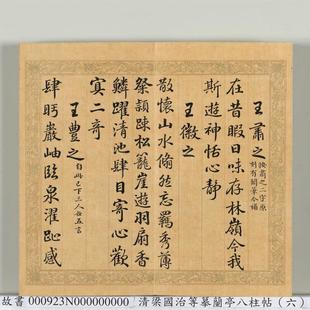 王肅之 按肅之二字原
刻有闕筆今補
在昔暇日味存林嶺今我
斯遊神恬心靜
王徽之
散懷山水翛然忘羈秀薄
粲穎疎松籠崖遊羽扇霄
鱗躍清池肆目寄心歡
寘二奇
王豊之 自此已下三人各五言
肆眄巖岫臨泉濯趾感
故書 000923N000000000 清梁國治等摹蘭亭八柱帖（六）